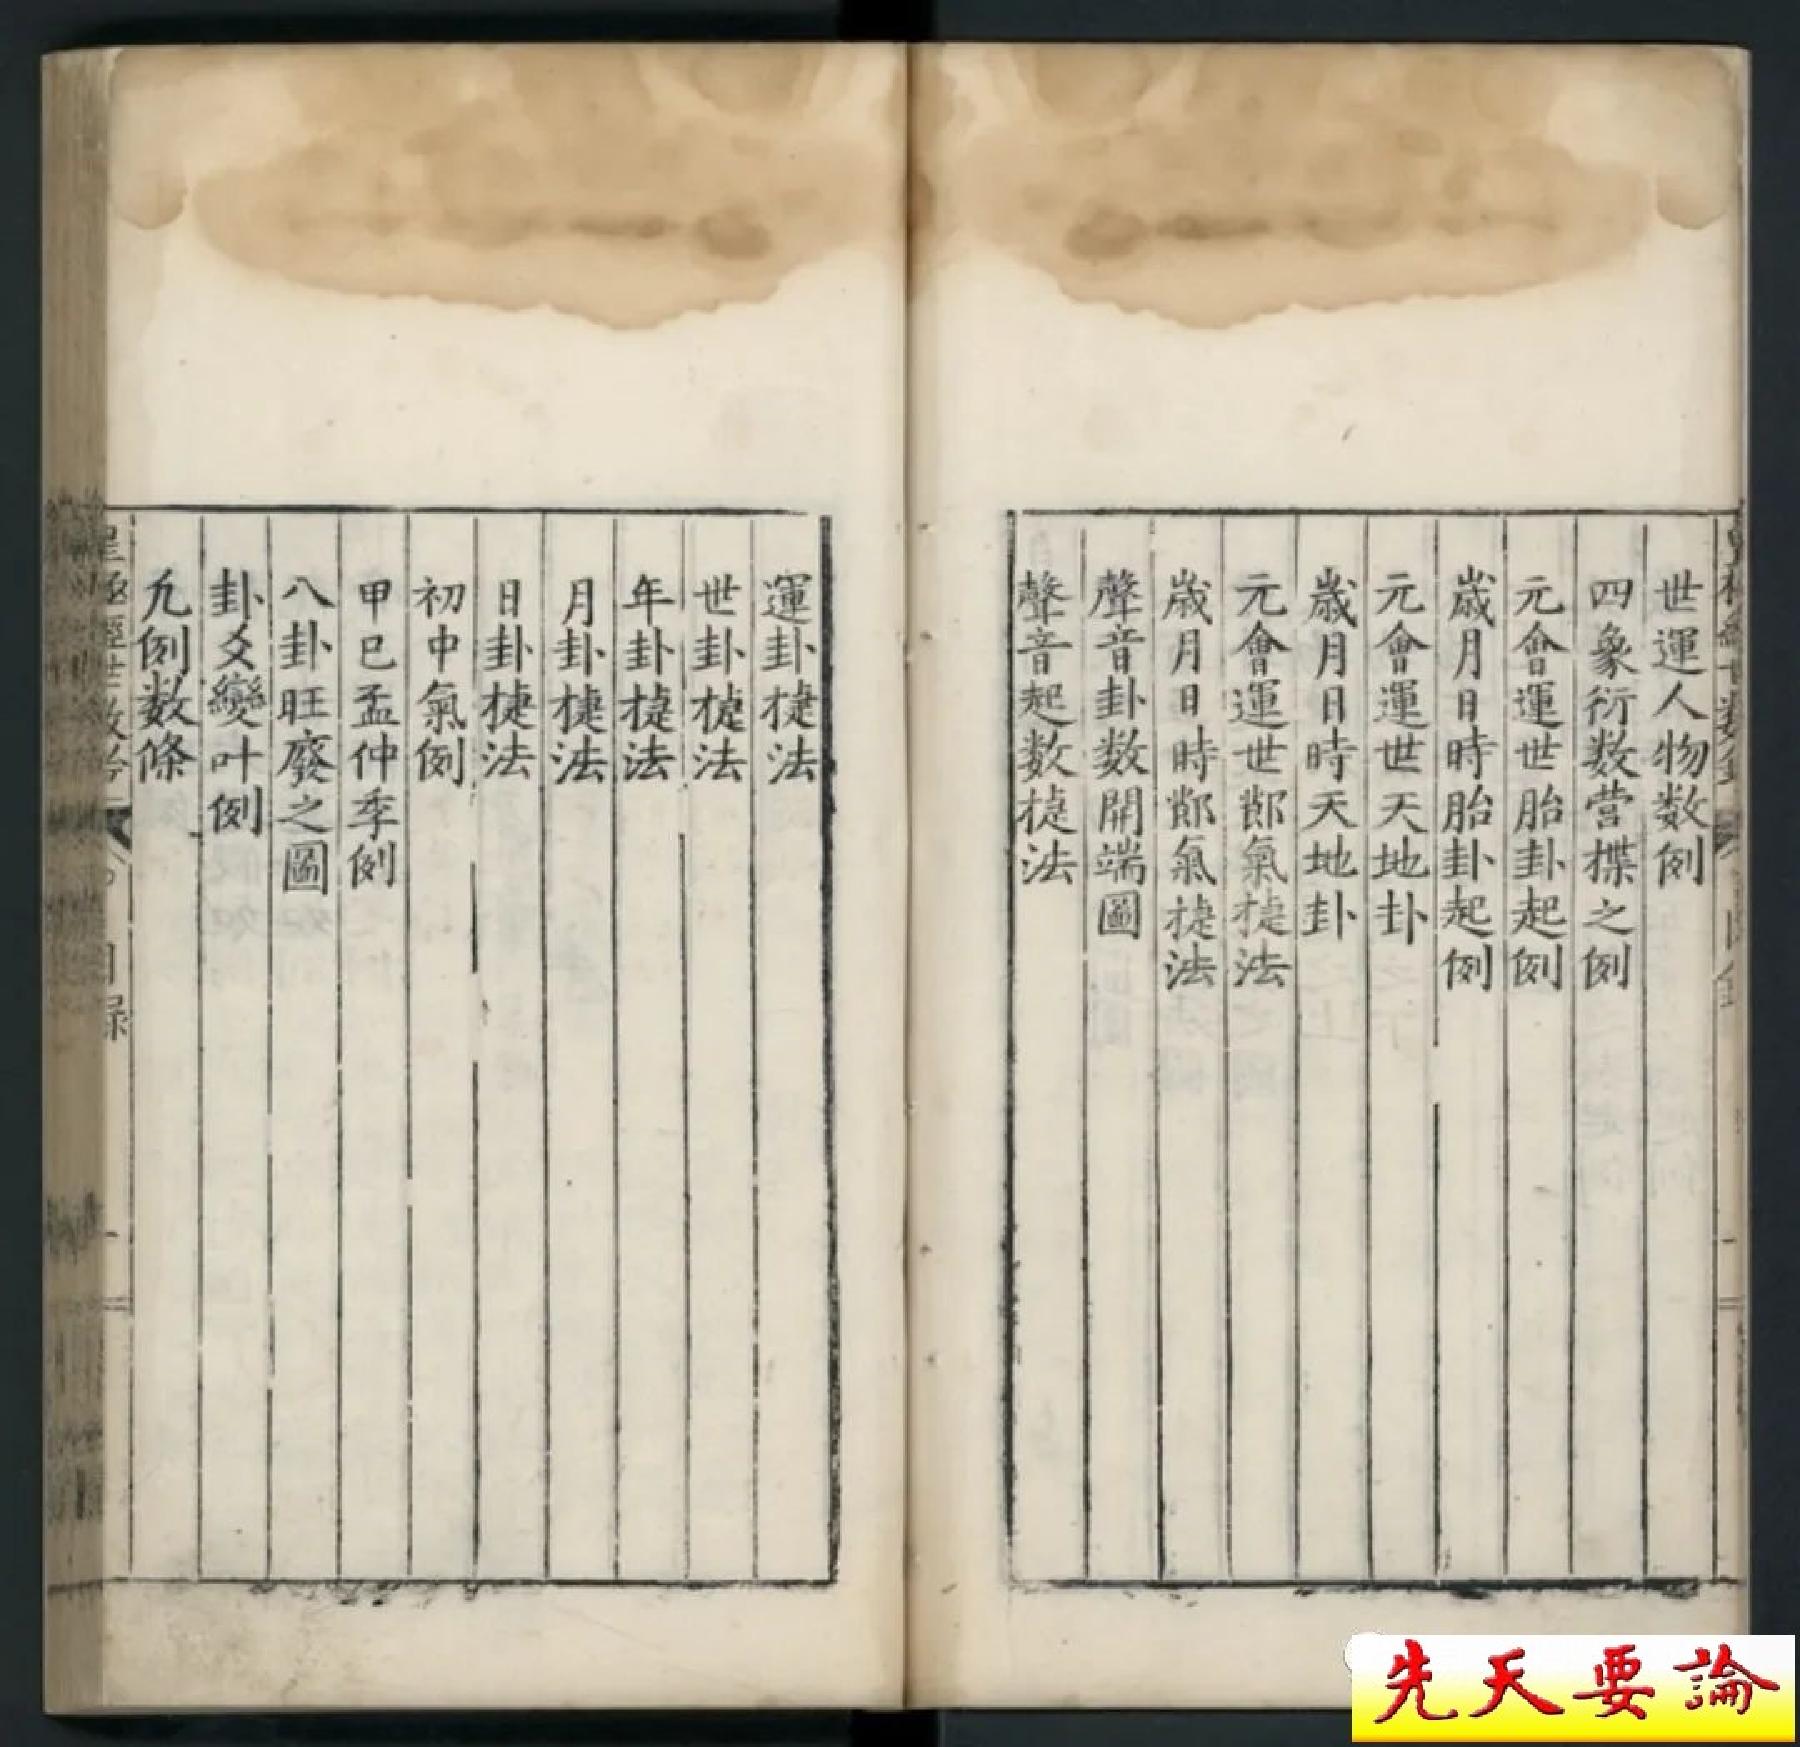 世運人物数例
四象衍数營揲之例
元會運世胎卦起例
歲月日時胎卦起例
元會運世天地卦
歲月日時天地卦
元會運世節氣捷法
歲月日時節氣捷法
聲音卦数開端圖
聲音起数捷法
運卦捷法
世卦捷法
年卦捷法
月卦捷法
日卦捷法
初中氣例
甲巳孟仲季例
八卦旺廢之圖
卦爻變叶例
凢例数條
目录
先天要論